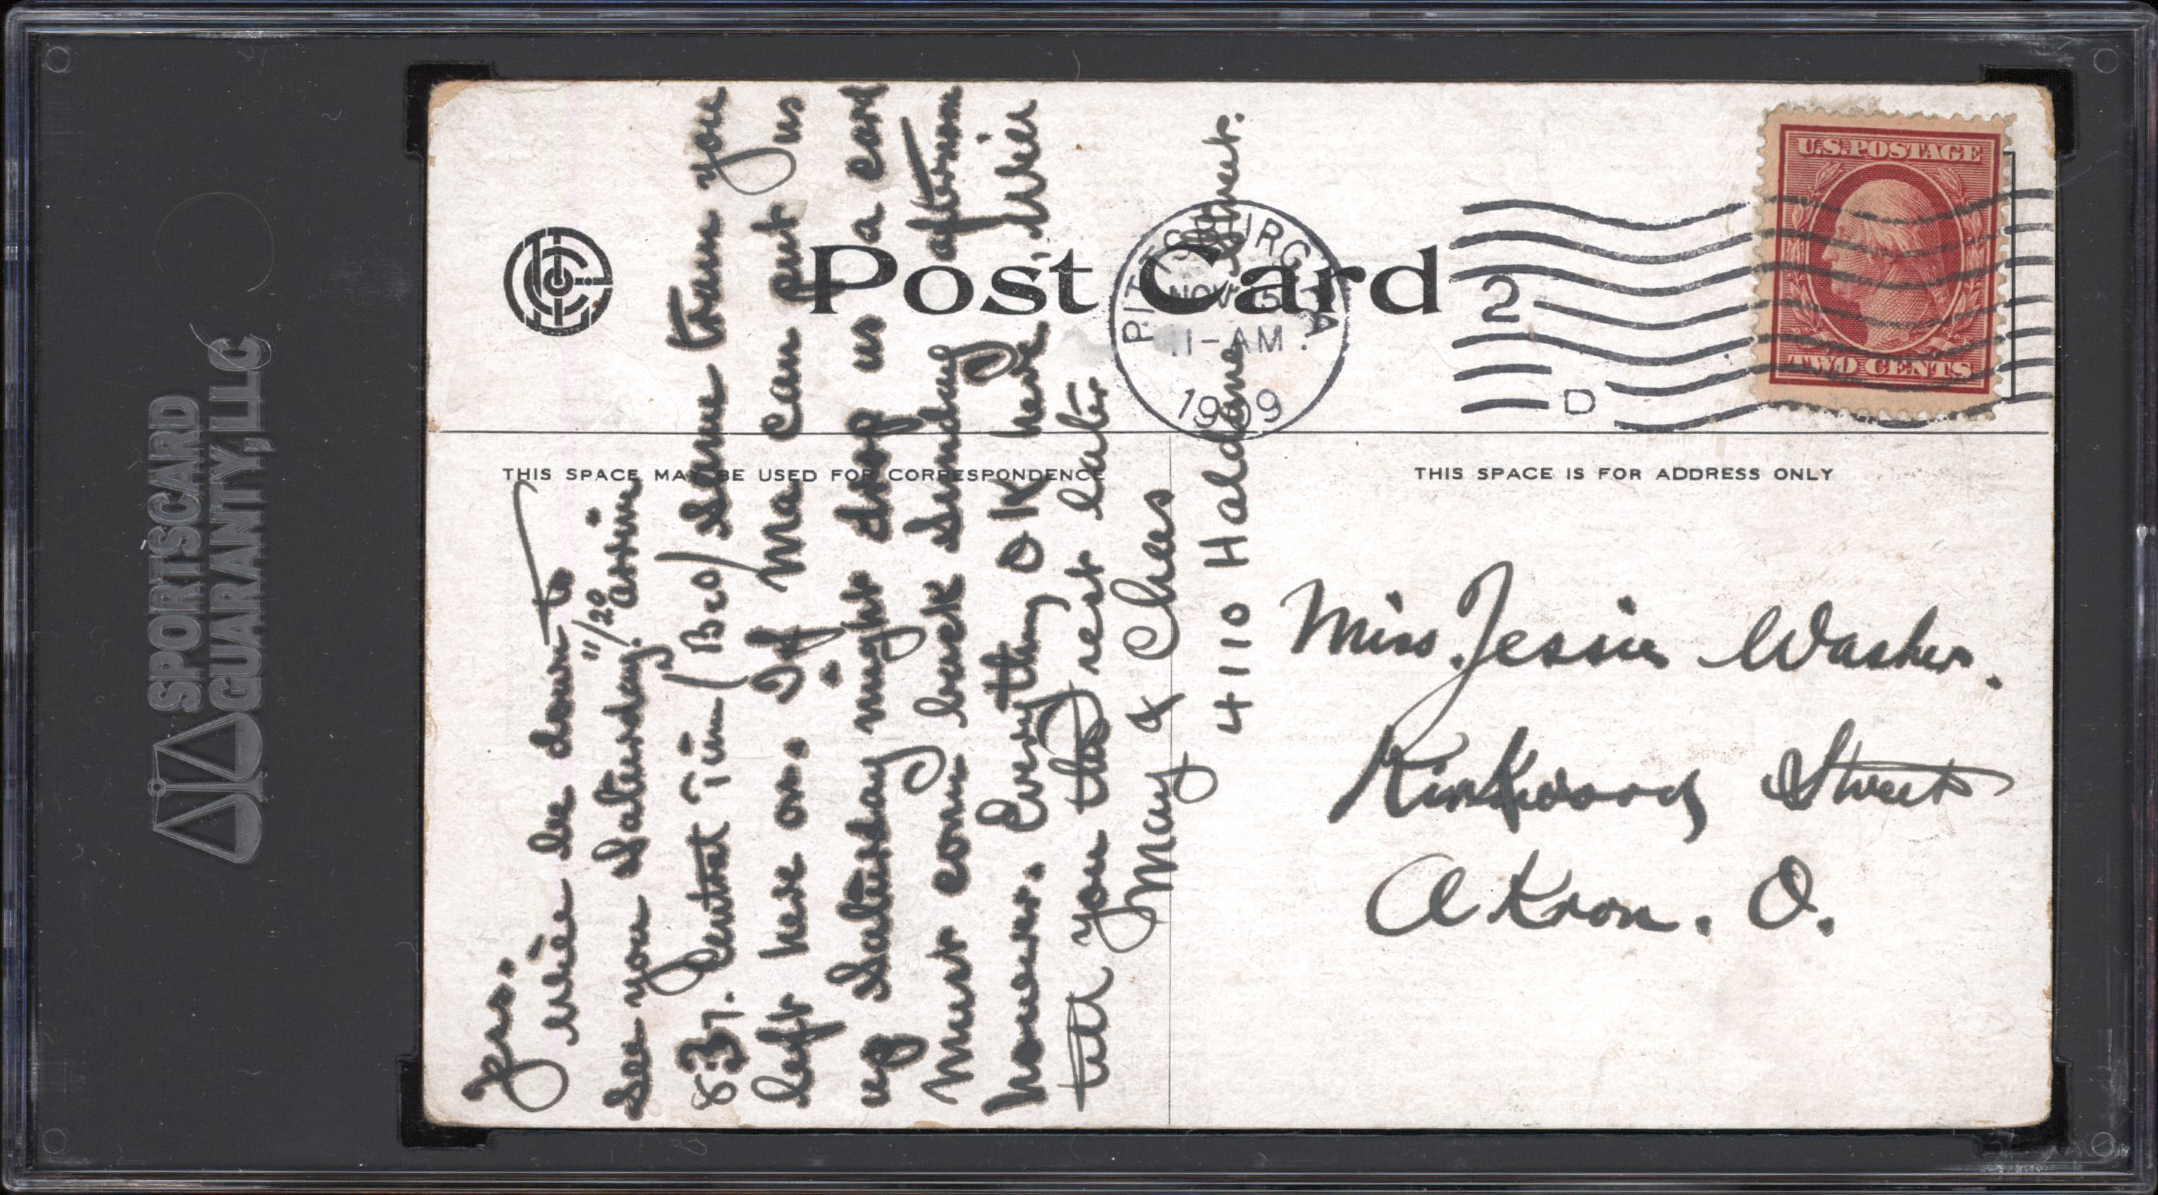 SPORTSCARD
GUARANTY, LLC
Post Card
PITTSBURG, PA
NOV 15
11-AM.
1909
2
D
U.S. POSTAGE
TWO CENTS
THIS SPACE MAY BE USED FOR CORRESPONDENCE
THIS SPACE IS FOR ADDRESS ONLY
Jess.
Will be down to
see you Saturday. 11/20 arrive
837. Central Time (B&O) same train you
left here on. If Ma can put us
up Saturday night drop us a card
Must come back Sunday afternoon
however. Everything OK here. Will
tell you the rest later
May & Chas
4110 Haldane Street.
Miss. Jessie Washer.
Kirkwood Street
Akron. O.